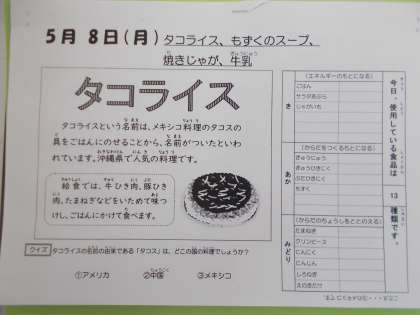 5月 8日(月) タコライス、もずくのスープ、
焼きじゃが、牛乳
タコライス
タコライスという名前は、メキシコ料理のタコスの
具をごはんにのせることから、名前がついたといわ
れています。沖縄県で人気の料理です。
給食では、牛ひき肉、豚ひき
肉、たまねぎなどをいためて味つ
けし、ごはんにかけて食べます。
クイズ タコライスの名前の由来である「タコス」は、どこの国の料理でしょうか?
①アメリカ ②中国 ③メキシコ
今日、使用している食品は 13 種類です。
き
(エネルギーのもとになる)
ごはん
サラダあぶら
じゃがいも
あか
(からだをつくるもとになる)
ぎゅうにゅう
ぎゅうひきにく
ぶたひきにく
もずく
みどり
(からだのちょうしをととのえる)
たまねぎ
グリンピース
にんにく
にんじん
しろねぎ
えのきだけ